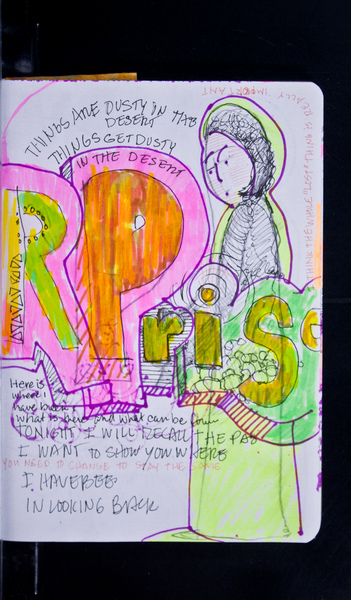 THINGS ARE DUSTY IN THE
DESERT
THINGS GET DUSTY
IN THE DESERT
RPriS
Here is
where I
have been
what is there and what can be
TONIGHT I WILL RECALL THE PAS
I WANT TO SHOW YOU WHERE
YOU NEED TO CHANGE TO STAY THE SAME
I HAVE BEE
IN LOOKING BACK
REALLY IMPORTANT
THINK THE WHOLE "LOST" THING IS